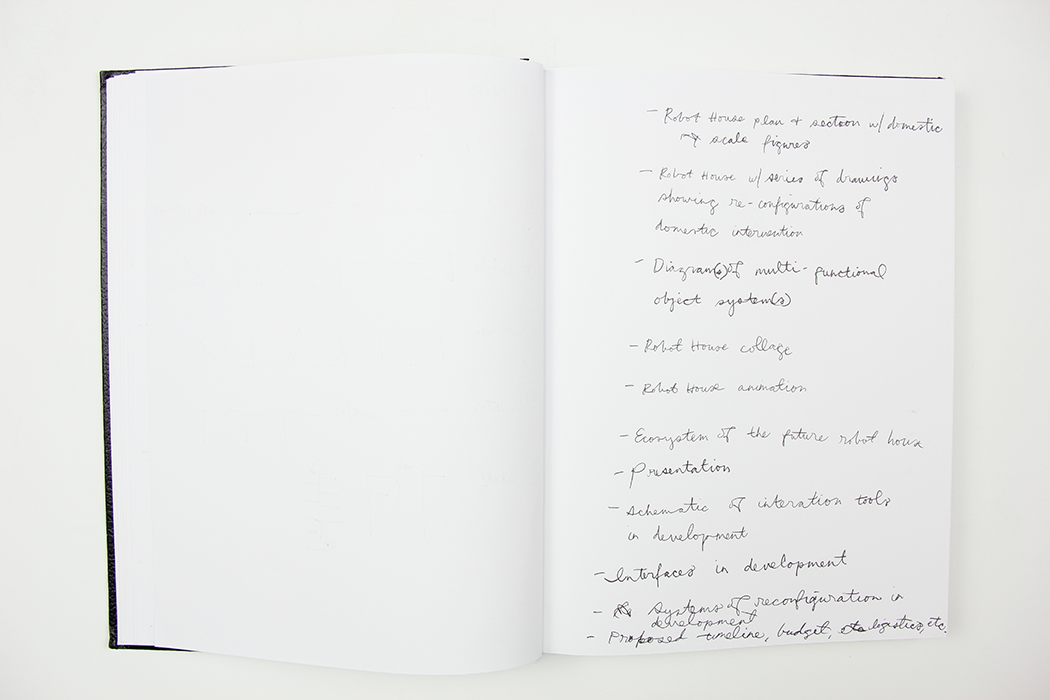 - Robot House plan + section w/ domestic
scale figures
- Robot House w/ series of drawings
showing re-configurations of
domestic intervention
- Diagram(s) of multi-functional
object system(s)
- Robot House collage
- Robot House animation
- Ecosystem of the future robot house
- Presentation
- Schematic of interation tools
in development
- Interfaces in development
- Systems of reconfiguration in
development
- Proposed timeline, budget, etc logistics, etc.